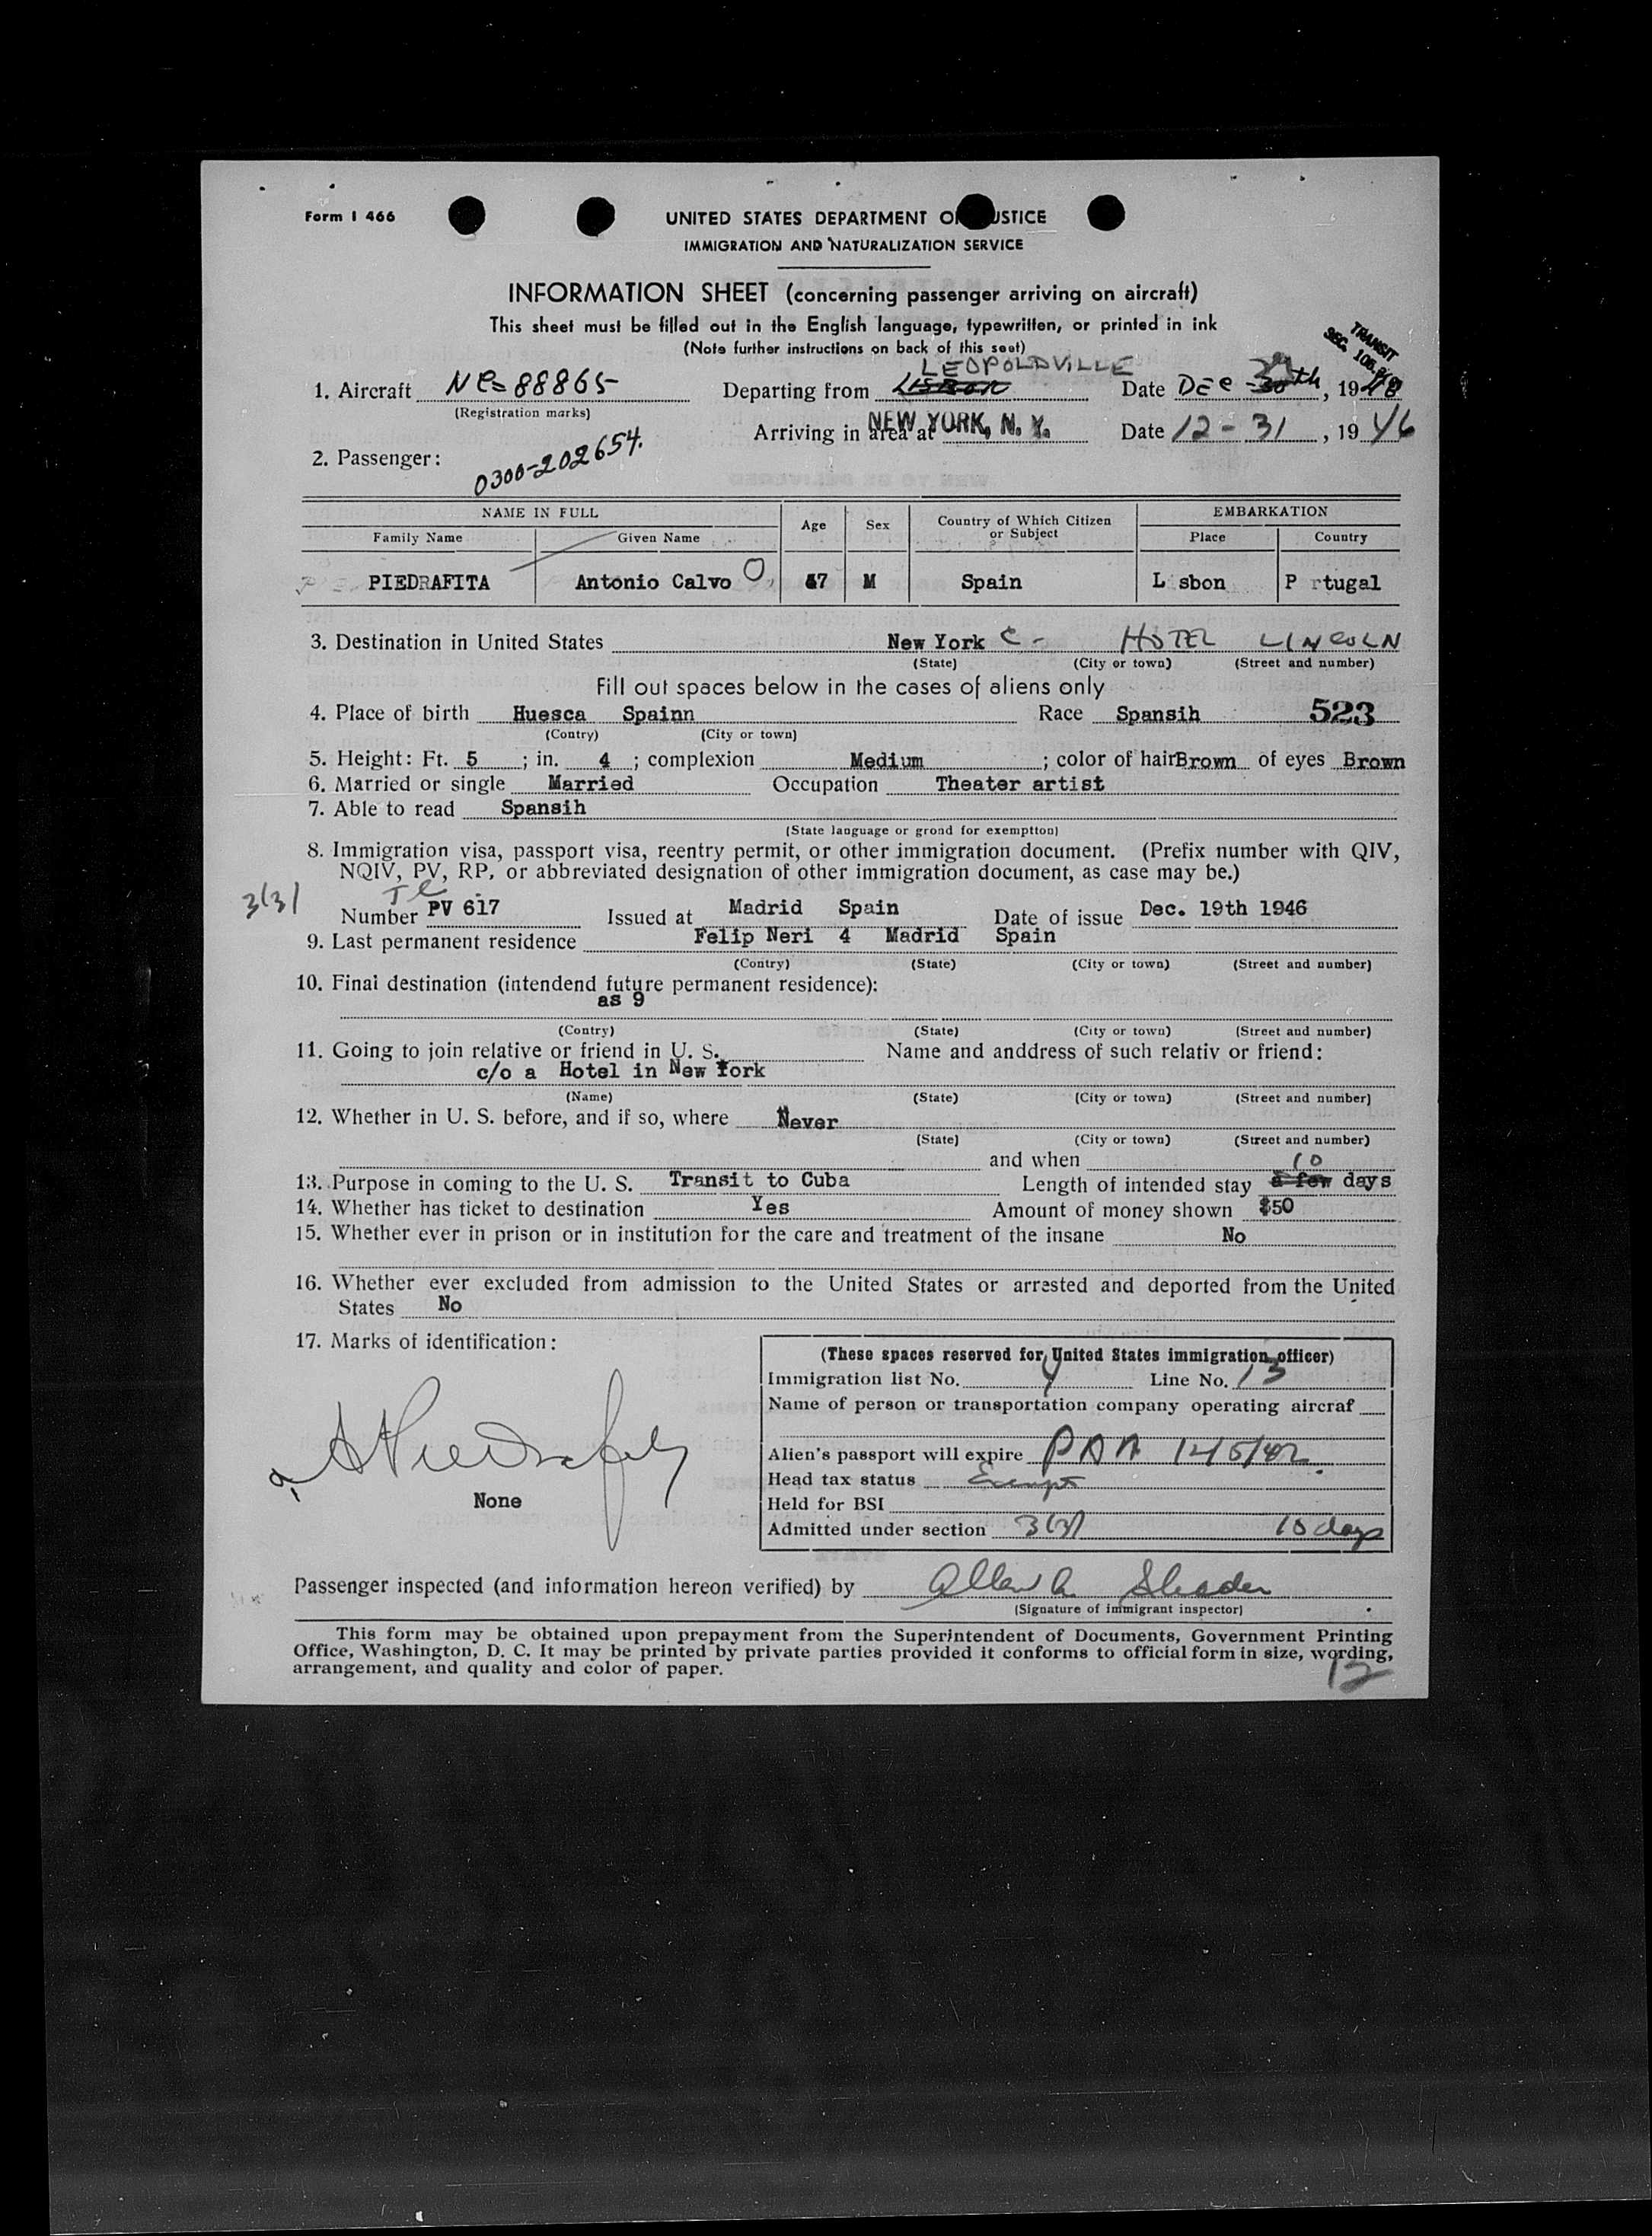 Form I 466
UNITED STATES DEPARTMENT O USTICE
IMMIGRATION AND NATURALIZATION SERVICE
INFORMATION SHEET (concerning passenger arriving on aircraft)
This sheet must be filled out in the English language, typewritten, or printed in ink
(Note further instructions on back of this seet)
TRANSIT
LEOPOLDVILLE
1. Aircraft NC-88865 Departing from Lisbon Date DEC - th, 19
(Registration marks)
Arriving in area at NEW YORK, N. Y. Date 12-31, 1946
2. Passenger: 0300-202654.
NAME IN FULL Age Sex Country of Which Citizen or Subject EMBARKATION
Family Name Given Name Place Country
PIEDRAFITA Antonio Calvo O, 47 M Spain L sbon P rtugal
3. Destination in United States New York C - HOTEL LINCOLN
(State) (City or town) (Street and number)
Fill out spaces below in the cases of aliens only
4. Place of birth Huesca Spainn Race Spansih 523
(Contry) (City or town)
5. Height: Ft. 5 ; in. 4 ; complexion Medium ; color of hair Brown of eyes Brown
6. Married or single Married Occupation Theater artist
7. Able to read Spansih
(State language or grond for exemption)
8. Immigration visa, passport visa, reentry permit, or other immigration document. (Prefix number with QIV,
NQIV, PV, RP, or abbreviated designation of other immigration document, as case may be.)
3(3)
Number PV 617 Issued at Madrid Spain Date of issue Dec. 19th 1946
9. Last permanent residence Felip Neri 4 Madrid Spain
(Contry) (State) (City or town) (Street and number)
10. Final destination (intendend future permanent residence):
as 9
(Contry) (State) (City or town) (Street and number)
11. Going to join relative or friend in U. S. Name and anddress of such relativ or friend:
c/o a Hotel in New York
(Name) (State) (City or town) (Street and number)
12. Whether in U. S. before, and if so, where Never
(State) (City or town) (Street and number)
and when
10
13. Purpose in coming to the U. S. Transit to Cuba Length of intended stay a few days
14. Whether has ticket to destination Yes Amount of money shown $50
15. Whether ever in prison or in institution for the care and treatment of the insane No
16. Whether ever excluded from admission to the United States or arrested and deported from the United
States No
17. Marks of identification:
None
(These spaces reserved for United States immigration officer)
Immigration list No. 4 Line No. 13
Name of person or transportation company operating aircraf
Alien's passport will expire PAA
Head tax status Exempt
Held for BSI
Admitted under section 3(3) 10 days
Passenger inspected (and information hereon verified) by
(Signature of immigrant inspector)
This form may be obtained upon prepayment from the Superintendent of Documents, Government Printing
Office, Washington, D. C. It may be printed by private parties provided it conforms to official form in size, wording,
arrangement, and quality and color of paper.